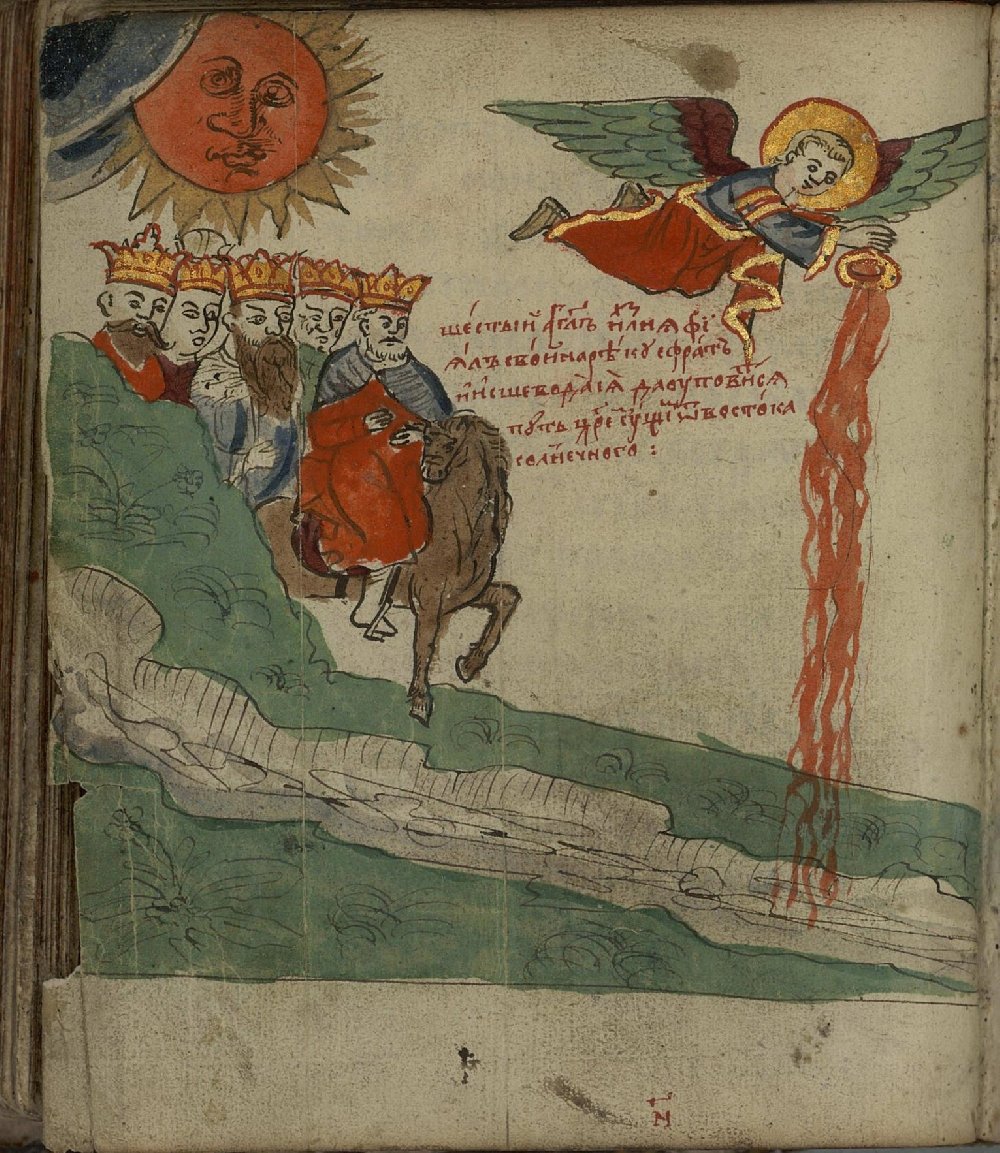 шестыи҆ а҆гг҃лъ и҆злїѧ фї
ѧлъ свои на рѣкꙋ є҆фратъ
и҆ и҆сше вода є҆ѧ̀ да оуготовитсѧ
пꙋть цр҃є сꙋщи ѿ востока
солнечного :
н҃